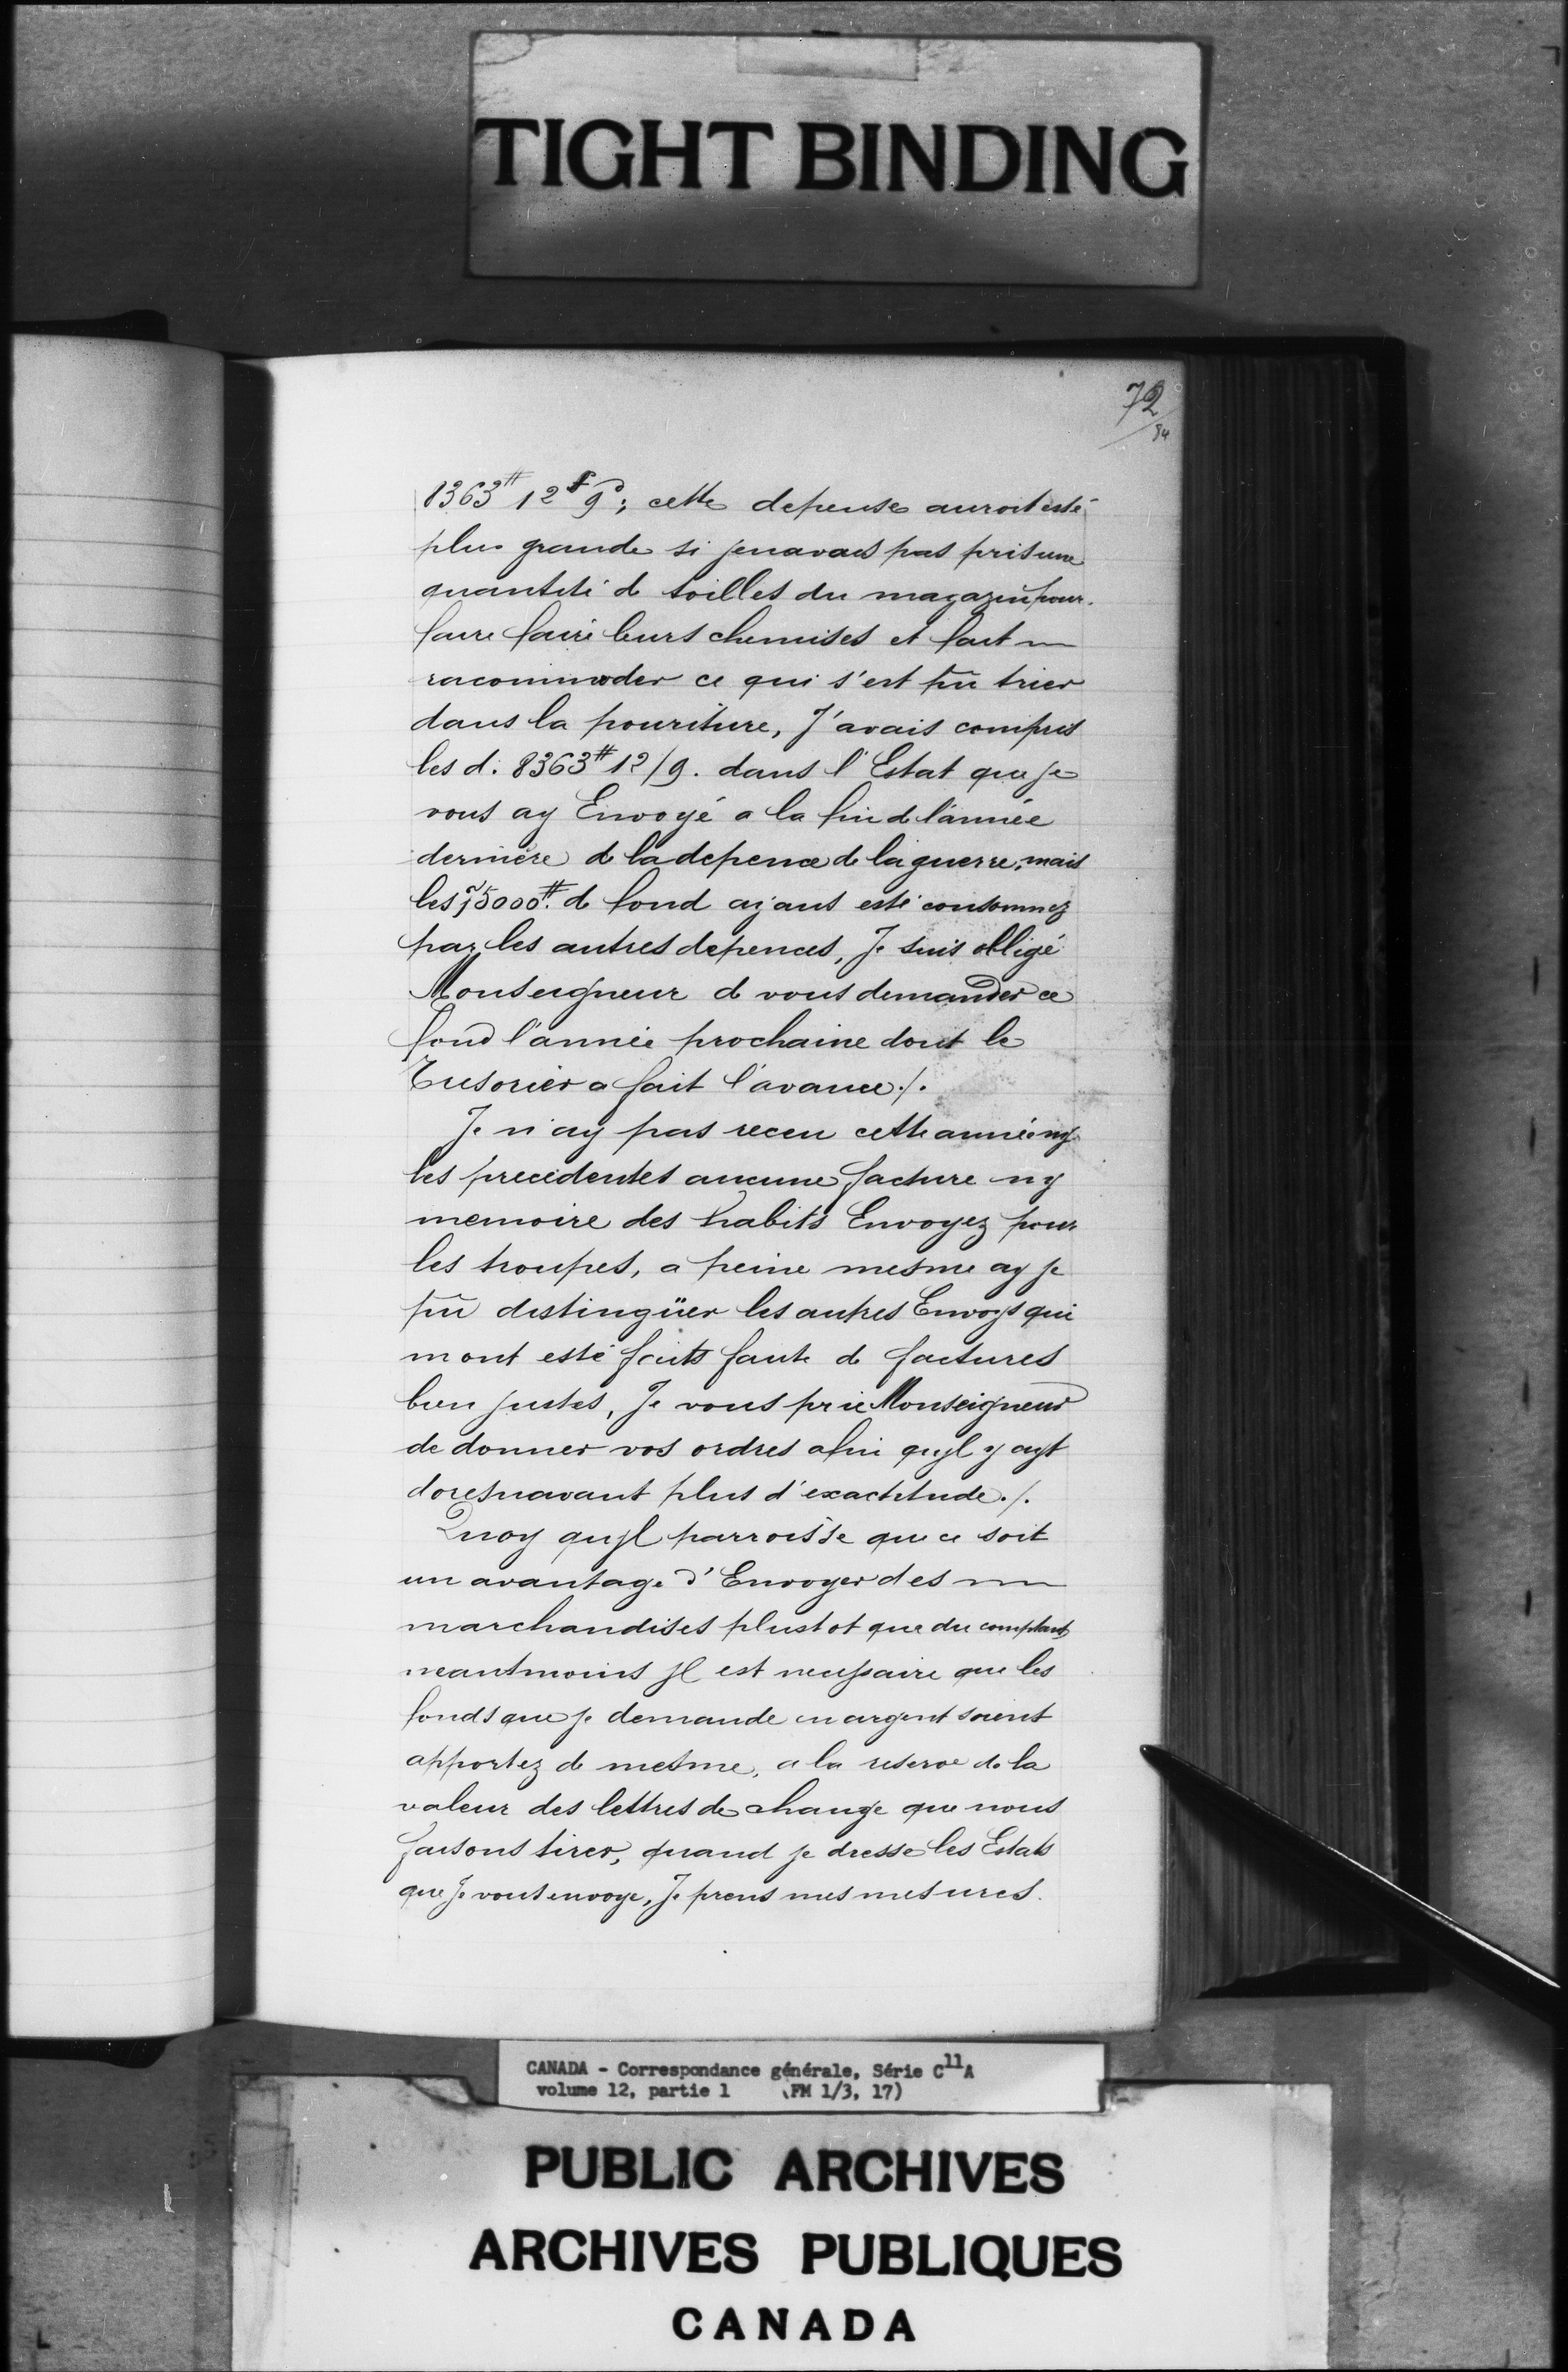 TIGHT BINDING
72
94
8363# 12s 9d; cette depense auroit esté
plus grande si jenavais pas pris une
quantité de toilles du magazin pour
faire faire leurs chemises et fait
racommoder ce qui s'est pû trier
dans la pouriture, J'avais compris
les d. 8363# 12/9. dans l'Estat que je
vous ay Envoyé a la fin de l'année
derniere de la depence de la guerre, mais
les 75000# de fond ayans esté consommez
par les autres depences, Je suis obligé
Monseigneur de vous demander ce
fond l'année prochaine dont le
Tresorier a fait l'avance./.
Je n'ay pas receu cette année ny
les precedentes aucune facture ny
memoire des habits Envoyez pour
les troupes, a peine mesme ay je
pû distingüer les autres Envoys qui
m ont esté faits faute de factures
bien justes, Je vous prie Monseigneur
de donner vos ordres afin qu'jl y ayt
doresnavant plus d'exactitude./.
Quoy qu'jl parroisse que ce soit
un avantage d'Envoyer des
marchandises plustot que du comptant
neantmoins jl est necessaire que les
fonds que je demande en argent soient
apportez de mesme, a la reserve de la
valeur des lettres de change que nous
faisons tirer, quand je dresse les Estats
que Je vous envoye, Je prens mes mesures.
CANADA - Correspondance générale, Série C11A
volume 12, partie 1 (FM 1/3, 17)
PUBLIC ARCHIVES
ARCHIVES PUBLIQUES
CANADA